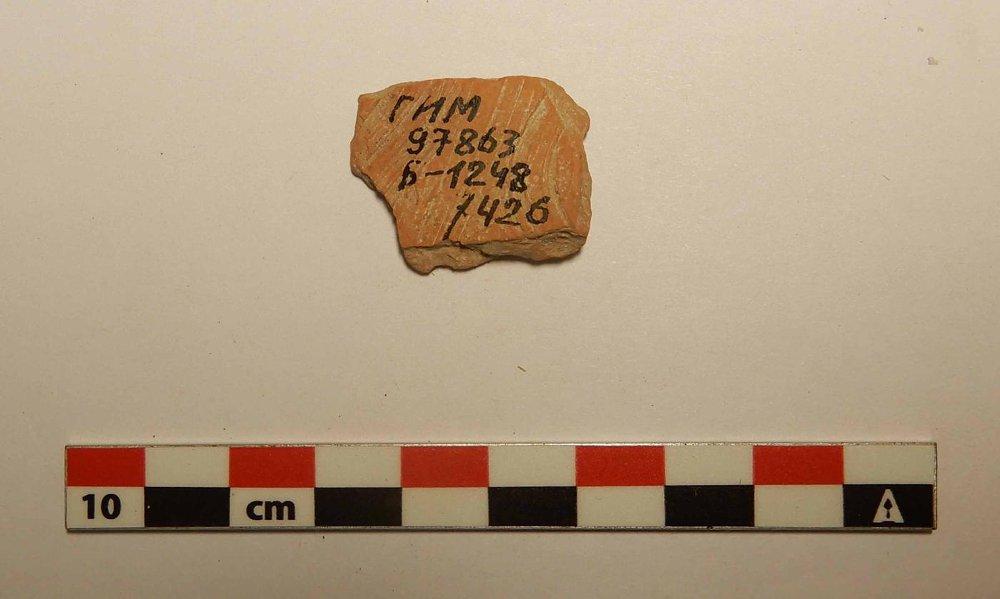 ГИМ
97863
Б-1248
/426
10 cm